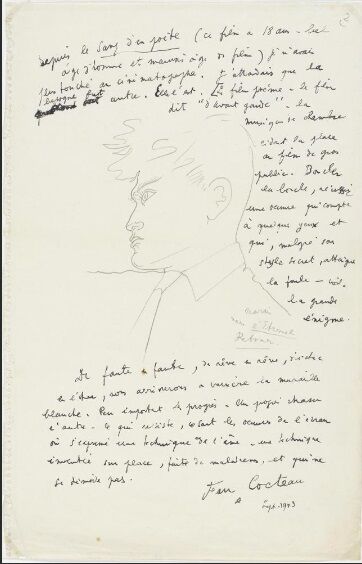 depuis le Sang d'un poète (ce film a 18 ans - bel
âge d'homme et mauvais âge de film) je n'avais
pas touché au cinématographe. J'attendais que la
besogne fut autre. Elle l'est. Le film poème - le film
dit "d'avant garde" - la
musique de chambre
cédant la place
au film de gros
public. Boucler
la boucle, réussir
une œuvre qui compte
à quelques yeux et
qui, malgré son
style secret, attaque
la foule - voilà
la grande
énigme.
Marais
dans l'Éternel
Retour.
De faute en faute, de rêve en rêve, d'idée
en idée, nous arriverons à vaincre la muraille
blanche. Peu importent les progrès. Un progrès chasse
l'autre. Ce qui existe, ce sont les œuvres de l'écran
où s'exprime une technique de l'âme - une technique
inventée sur place, faite de maldresses, et qui ne
se démode pas.
Jean Cocteau
Sept. 1943